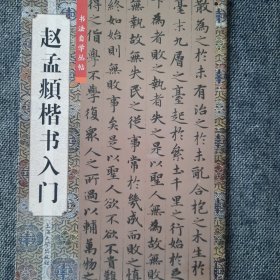 赵孟頫楷书入门
书法自学丛帖
散為之於未有治之於未亂合抱之木生於
末九層之臺起於絫土千里之行始於
為者敗之執者失之是以聖人無為故無
無執故無失民之從事常於幾成而敗之慎
終如始則無敗事矣是以聖人欲不欲不貴
貨學不學復眾人之所過以輔萬物